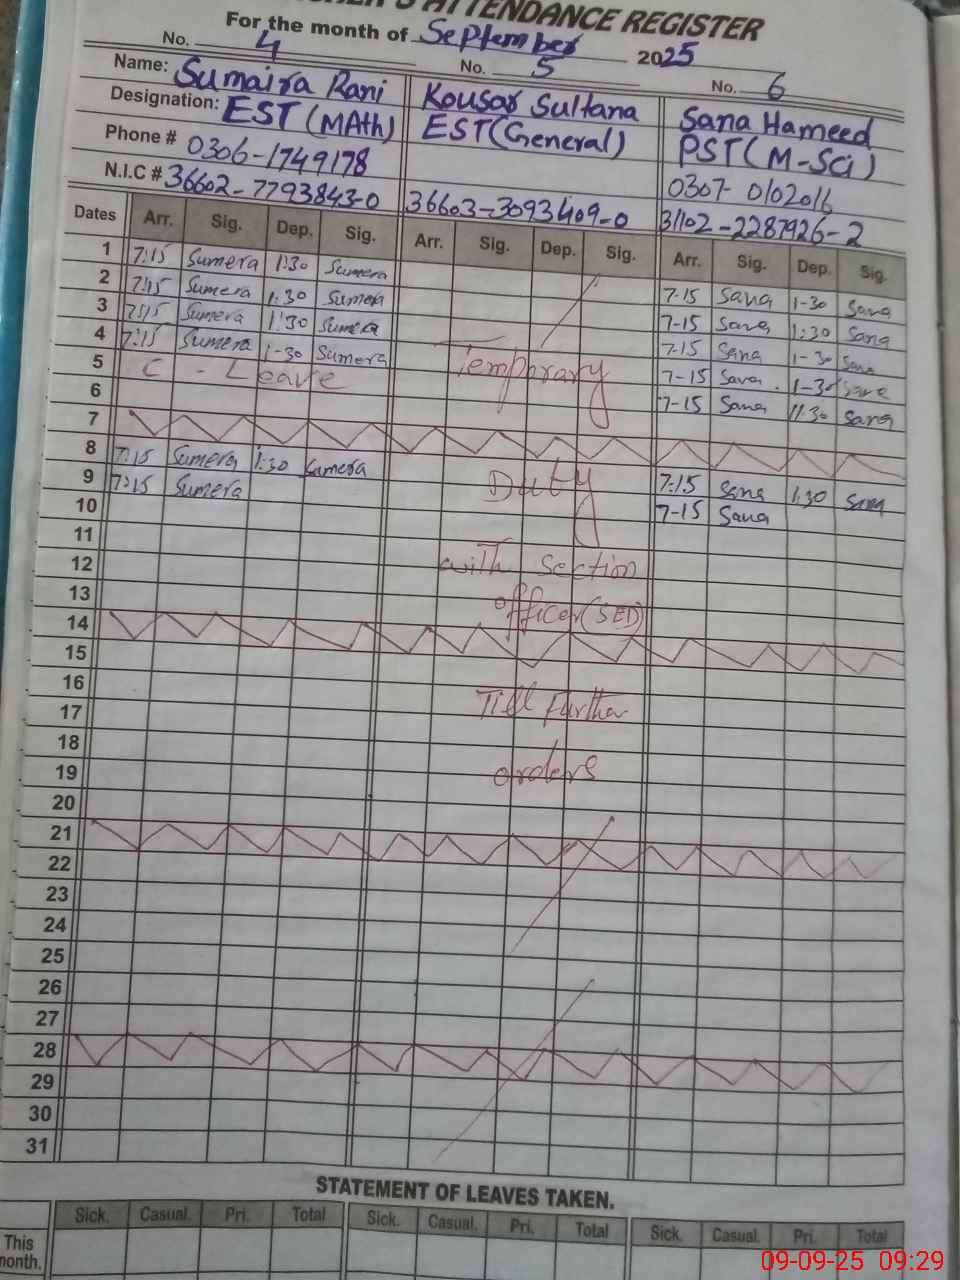 'S ATTENDANCE REGISTER
For the month of September 2025
No. 4 No. 5 No. 6
Name: Sumaira Rani Kousar Sultana Sana Hameed
Designation: EST (MAth) EST(General) PST(M-Sci)
Phone # 0306-1749178 0307-0102016
N.I.C # 36602-7793843-0 36603-3093409-0 31102-2287926-2
Dates Arr. Sig. Dep. Sig. Arr. Sig. Dep. Sig. Arr. Sig. Dep. Sig.
1 7:15 Sumera 1:30 Sumera 7-15 Sana 1-30 Sana
2 7:15 Sumera 1:30 Sumera 7-15 Sana 1:30 Sana
3 7:15 Sumera 1:30 Sumera 7:15 Sana 1-30 Sana
4 7:15 Sumera 1-30 Sumera Temprary 7-15 Sana 1-30 Sana
5 C - Leave 7-15 Sana 11:30 Sana
6
7
8 7:15 Sumera 1:30 Sumera Duty 7:15 Sana 1:30 Sana
9 7:15 Sumera 7-15 Sana
10
11
12 with Section
13 officer (SED)
14
15
16
17 Till Further
18
19 orders
20
21
22
23
24
25
26
27
28
29
30
31
STATEMENT OF LEAVES TAKEN.
Sick. Casual. Pri. Total Sick. Casual. Pri. Total Sick. Casual. Pri. Total
This
month.
09-09-25 09:29